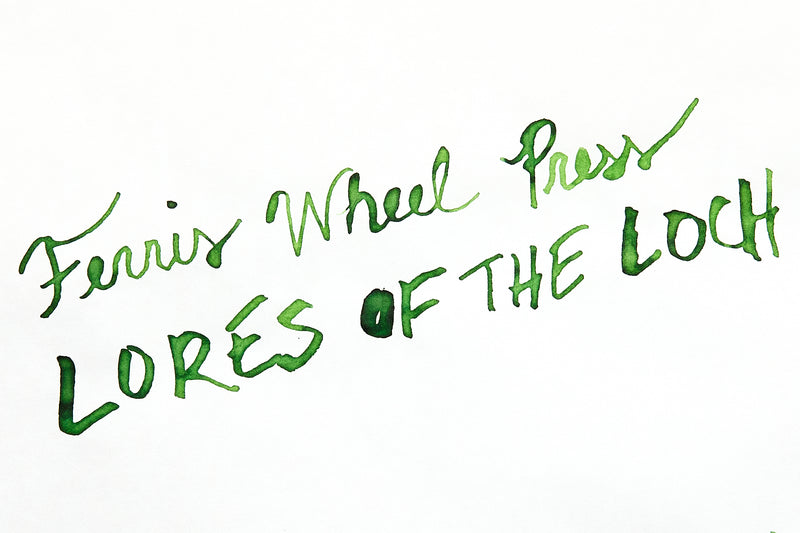 Ferris Wheel Press
LORES OF THE LOCH